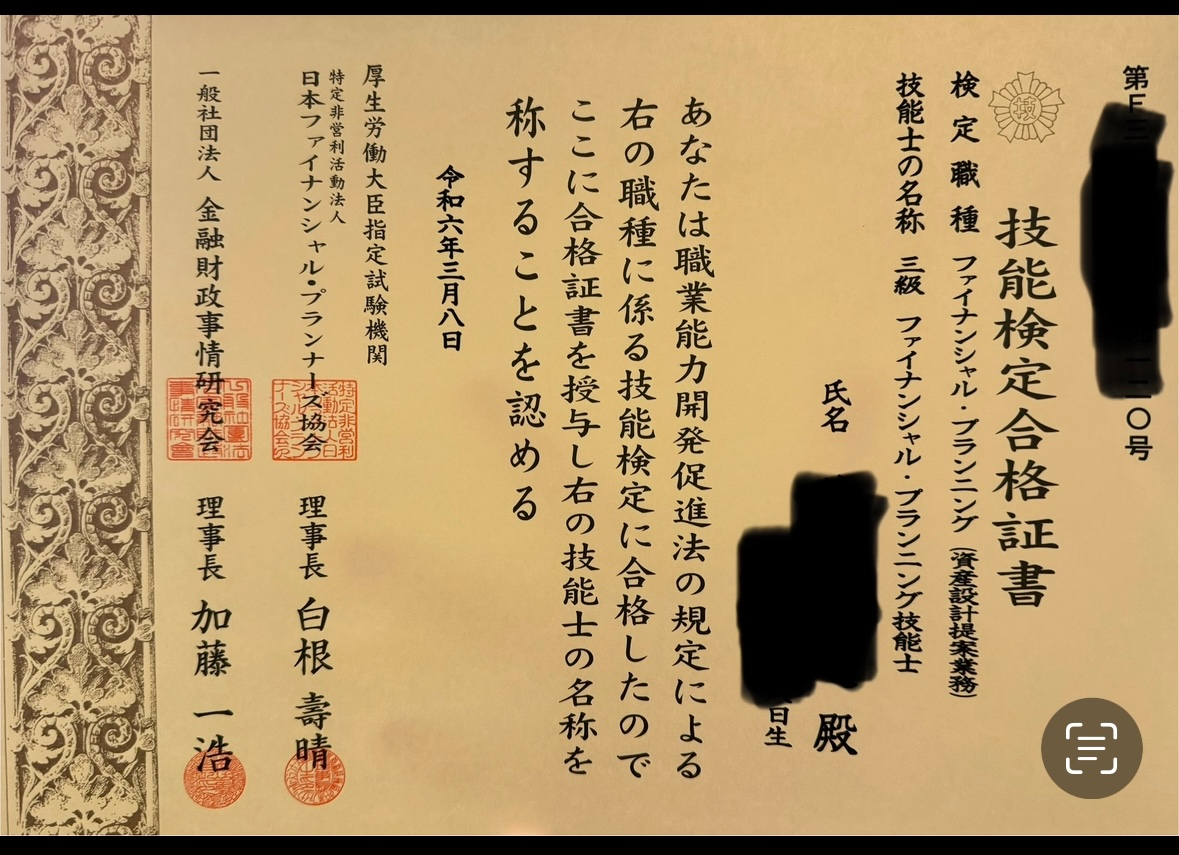 第F三
一二〇号
技能検定合格証書
技
検定職種 ファイナンシャル・プランニング(資産設計提案業務)
技能士の名称 三級 ファイナンシャル・プランニング技能士
氏名
殿
日生
あなたは職業能力開発促進法の規定による
右の職種に係る技能検定に合格したので
ここに合格証書を授与し右の技能士の名称を
称することを認める
令和六年三月八日
厚生労働大臣指定試験機関
特定非営利活動法人
日本ファイナンシャル・プランナーズ協会 理事長 白根 壽晴
一般社団法人 金融財政事情研究会 理事長 加藤 一浩